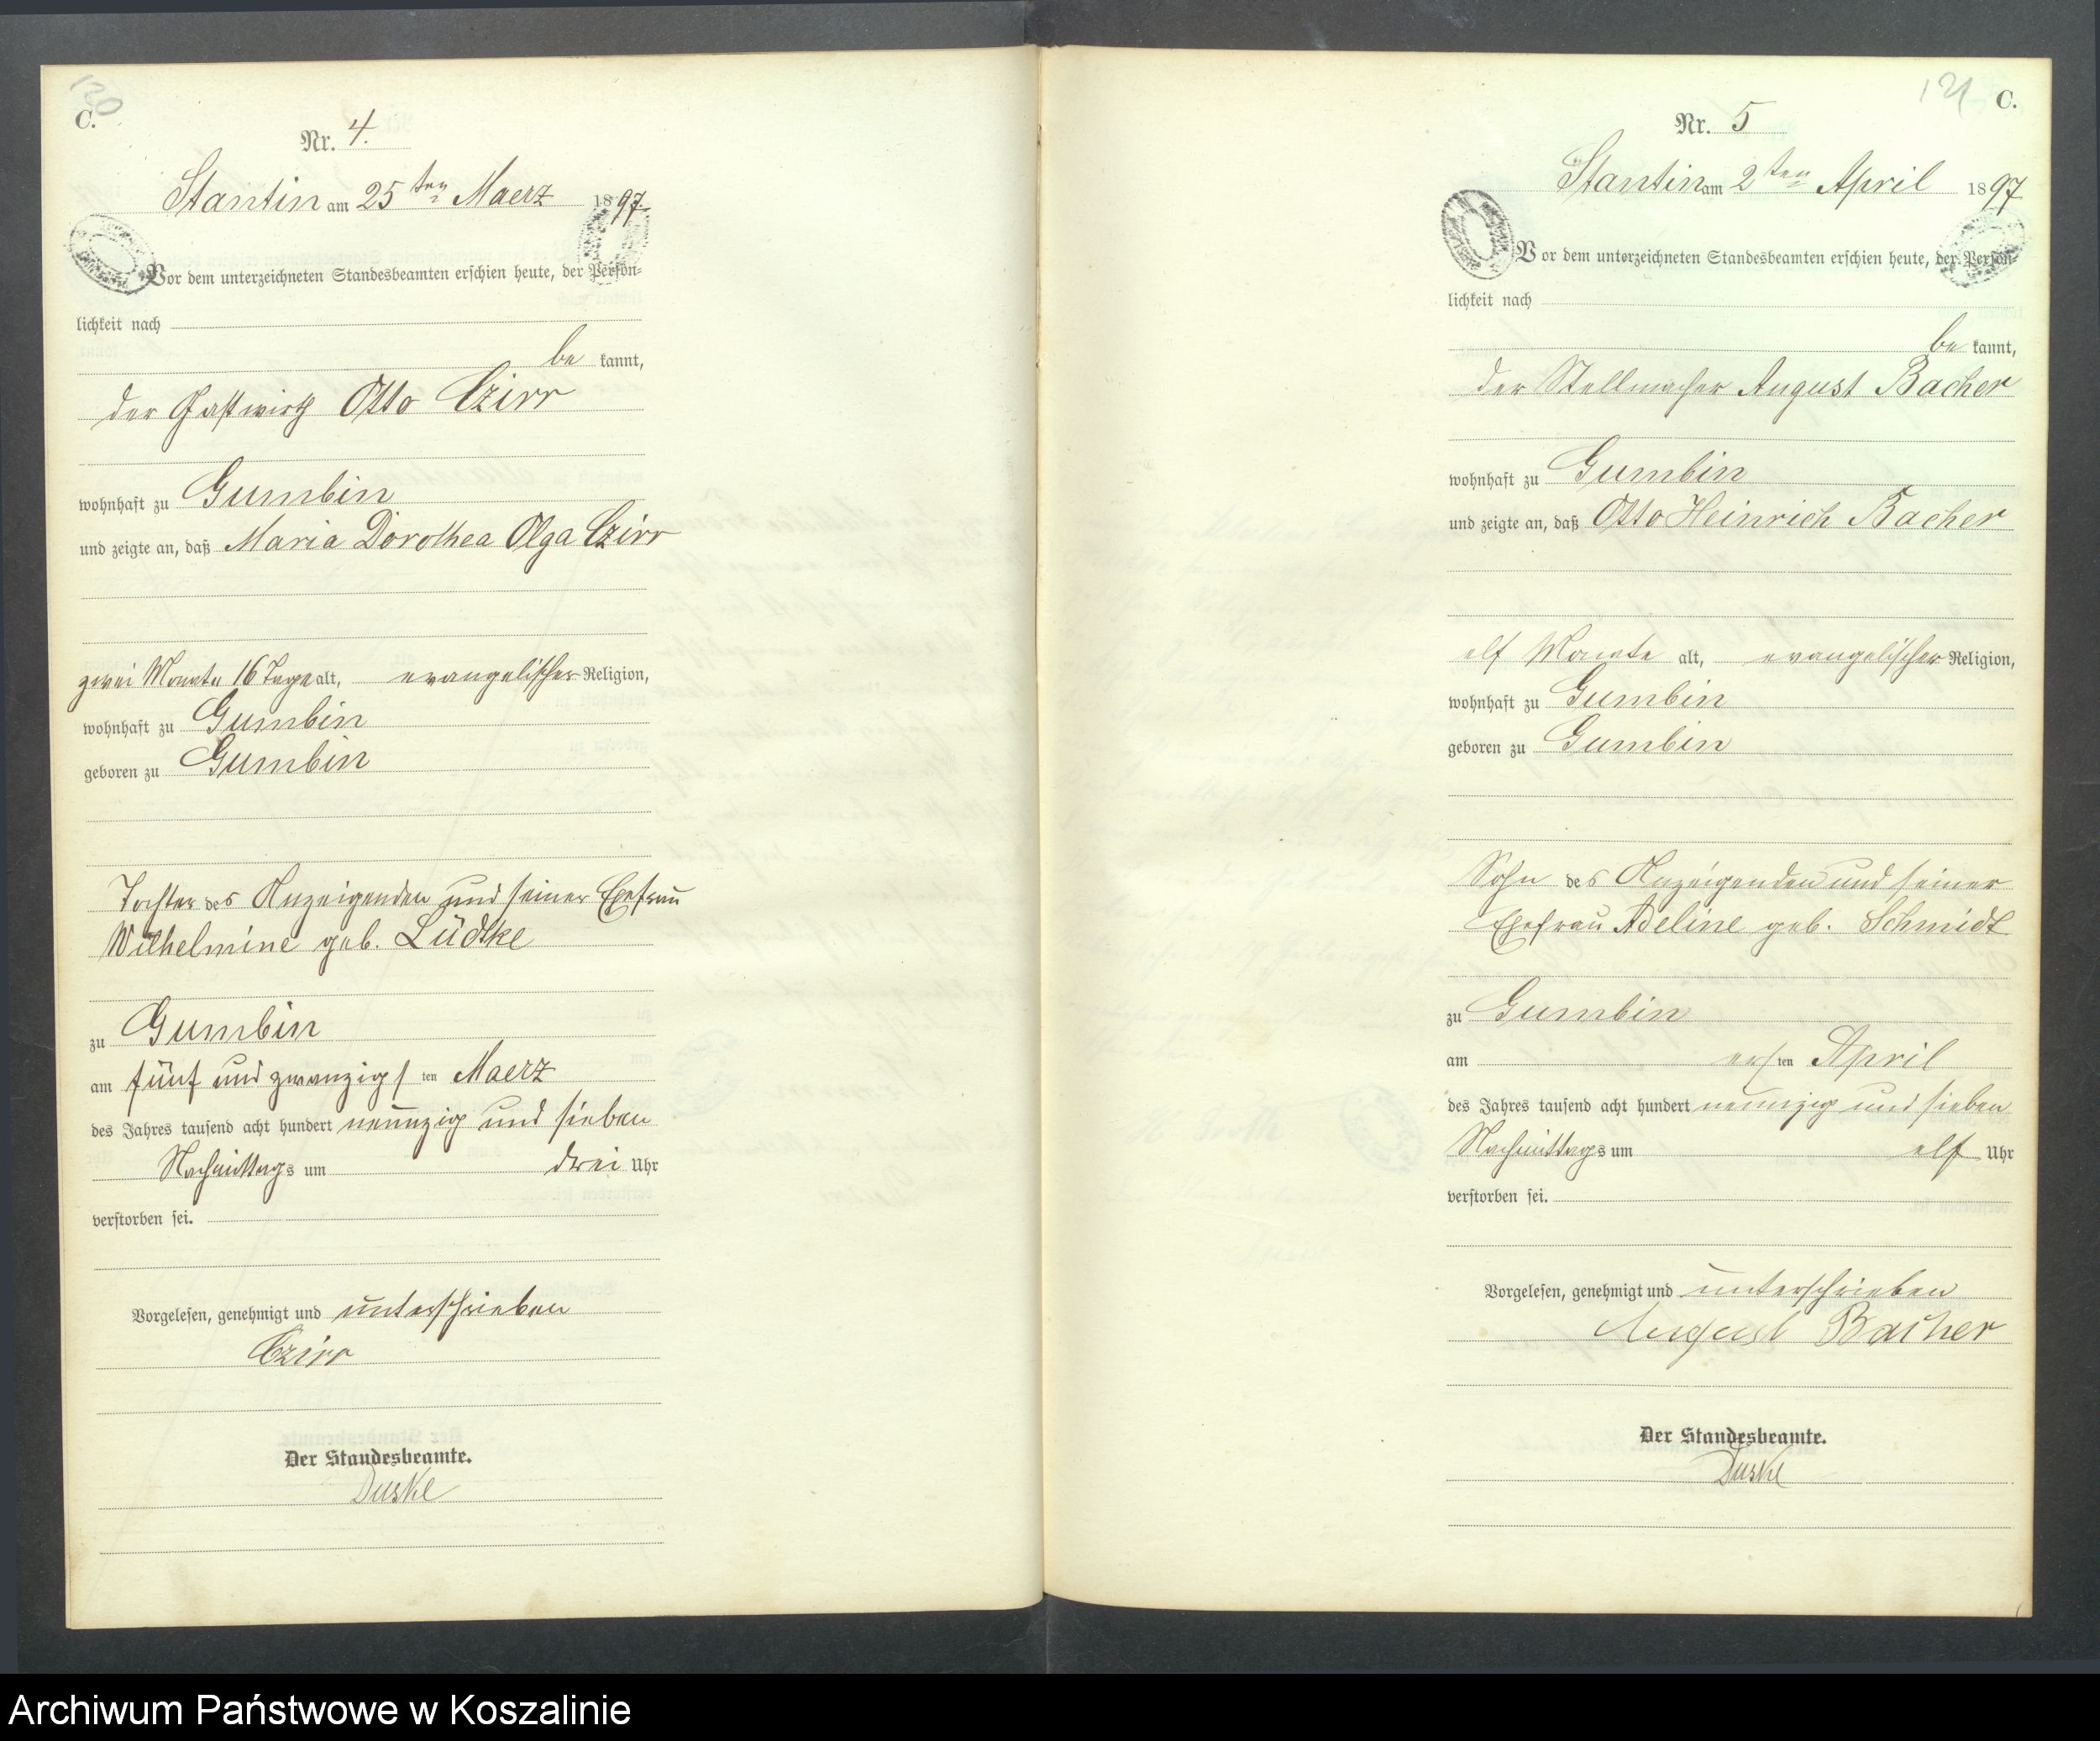 130
C.
Nr. 4.
Stantin am 25ten Maerz 1897.
Vor dem unterzeichneten Standesbeamten erschien heute, der Persön=
lichkeit nach
be kannt,
der Gastwirth Otto Czirr
wohnhaft zu Gumbin
und zeigte an, daß Maria Dorothea Olga Czirr
zwei Monate 16 Tage alt, evangelischer Religion,
wohnhaft zu Gumbin
geboren zu Gumbin
Tochter des Anzeigenden und seiner Ehefrau
Wilhelmine geb. Lüdtke
zu Gumbin
am fünf und zwanzigsten Maerz
des Jahres tausend acht hundert neunzig und sieben
Nachmittags um drei Uhr
verstorben sei.
Vorgelesen, genehmigt und unterschrieben
Czirr
Der Standesbeamte.
Duske
131
C.
Nr. 5
Stantin am 2ten April 1897
Vor dem unterzeichneten Standesbeamten erschien heute, der Persön=
lichkeit nach
be kannt,
der Stellmacher August Bacher
wohnhaft zu Gumbin
und zeigte an, daß Otto Heinrich Bacher
elf Monate alt, evangelischer Religion,
wohnhaft zu Gumbin
geboren zu Gumbin
Sohn des Anzeigenden und seiner
Ehefrau Adeline geb. Schmidt
zu Gumbin
am ersten April
des Jahres tausend acht hundert neunzig und sieben
Nachmittags um elf Uhr
verstorben sei.
Vorgelesen, genehmigt und unterschrieben
August Bacher
Der Standesbeamte.
Duske
Archiwum Państwowe w Koszalinie